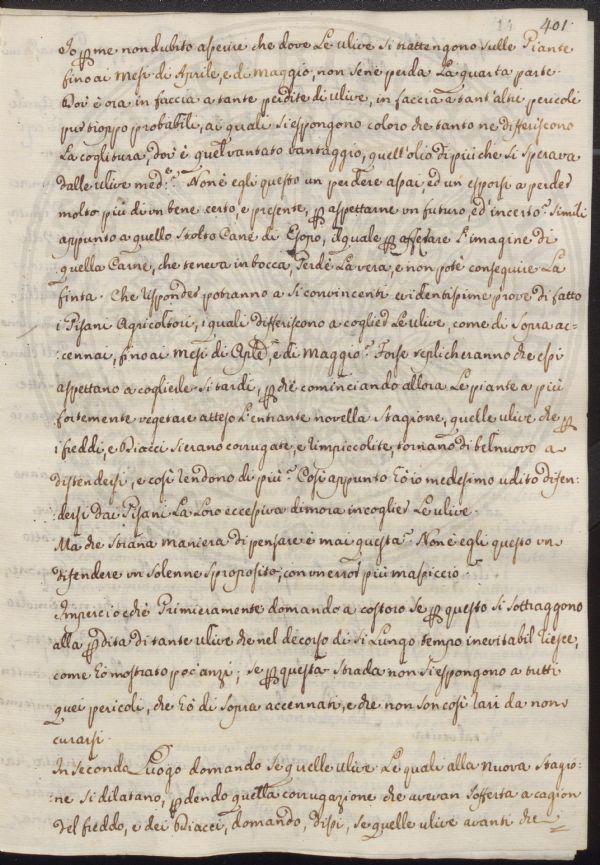 14 401.
Io p me non dubito asserire che dove Le ulive si trattengono sulle Piante
fino ai Mesi di Aprile, e di Maggio, non se ne perda La quarta parte.
Dov' è ora in faccia a tante perdite di ulive, in faccia a tant' altri pericoli
pur troppo probabili, ai quali si espongono coloro che tanto ne differiscono
La coglitura, dov' è quel vantato vantaggio, quell' olio di più che si sperava
dalle ulive med.e? Non è egli questo un perdere assai, ed un esporsi a perder
molto più di un bene certo, e presente, p aspettarne un futuro, ed incerto? Simili
appunto a quello stolto Cane di Esopo, il quale p afferrare L' imagine di
quella Carne, che teneva in bocca, Perdè La vera, e non potè conseguire La
finta. Che risponder potranno a sì convincenti evidentissime prove di fatto
i Pisani Agricoltori, i quali differiscono a coglier Le ulive, come di sopra ac-
:cennai, fino ai Mesi di Aple, e di Maggio? Forse replicheranno che essi
aspettano a coglierle sì tardi, p chè cominciando allora Le piante a più
fortemente vegetare atteso L' entrante novella Stagione, quelle ulive che p
i freddi, e Diacci si erano corrugate, e rimpiccolite, tornano di bel nuovo a
distendersi, e così rendono di più? Così appunto hò io medesimo udito difen:
:dersi dai Pisani La Loro eccessiva dimora in coglier Le ulive.
Ma che strana maniera di pensare è mai questa? Non è egli questo un
difendere un solenne sproposito, con un error più masiccio?
Imperciocchè Primieramente domando a costoro se p questo si sottraggono
alla pdita di tante ulive che nel decorso di sì Lungo tempo inevitabil riesce,
come hò mostrato poc' anzi; se p questa strada non si espongono a tutti
quei pericoli, che hò di sopra accennati, e che non son così rari da non
curarsi.
In secondo Luogo domando se quelle ulive Le quali alla nuova Stagio:
:ne si dilatano, pdendo quella corrugazione che avevan sofferta a cagion
del freddo, e dei Diacci, domando, dissi, se quelle ulive avanti che